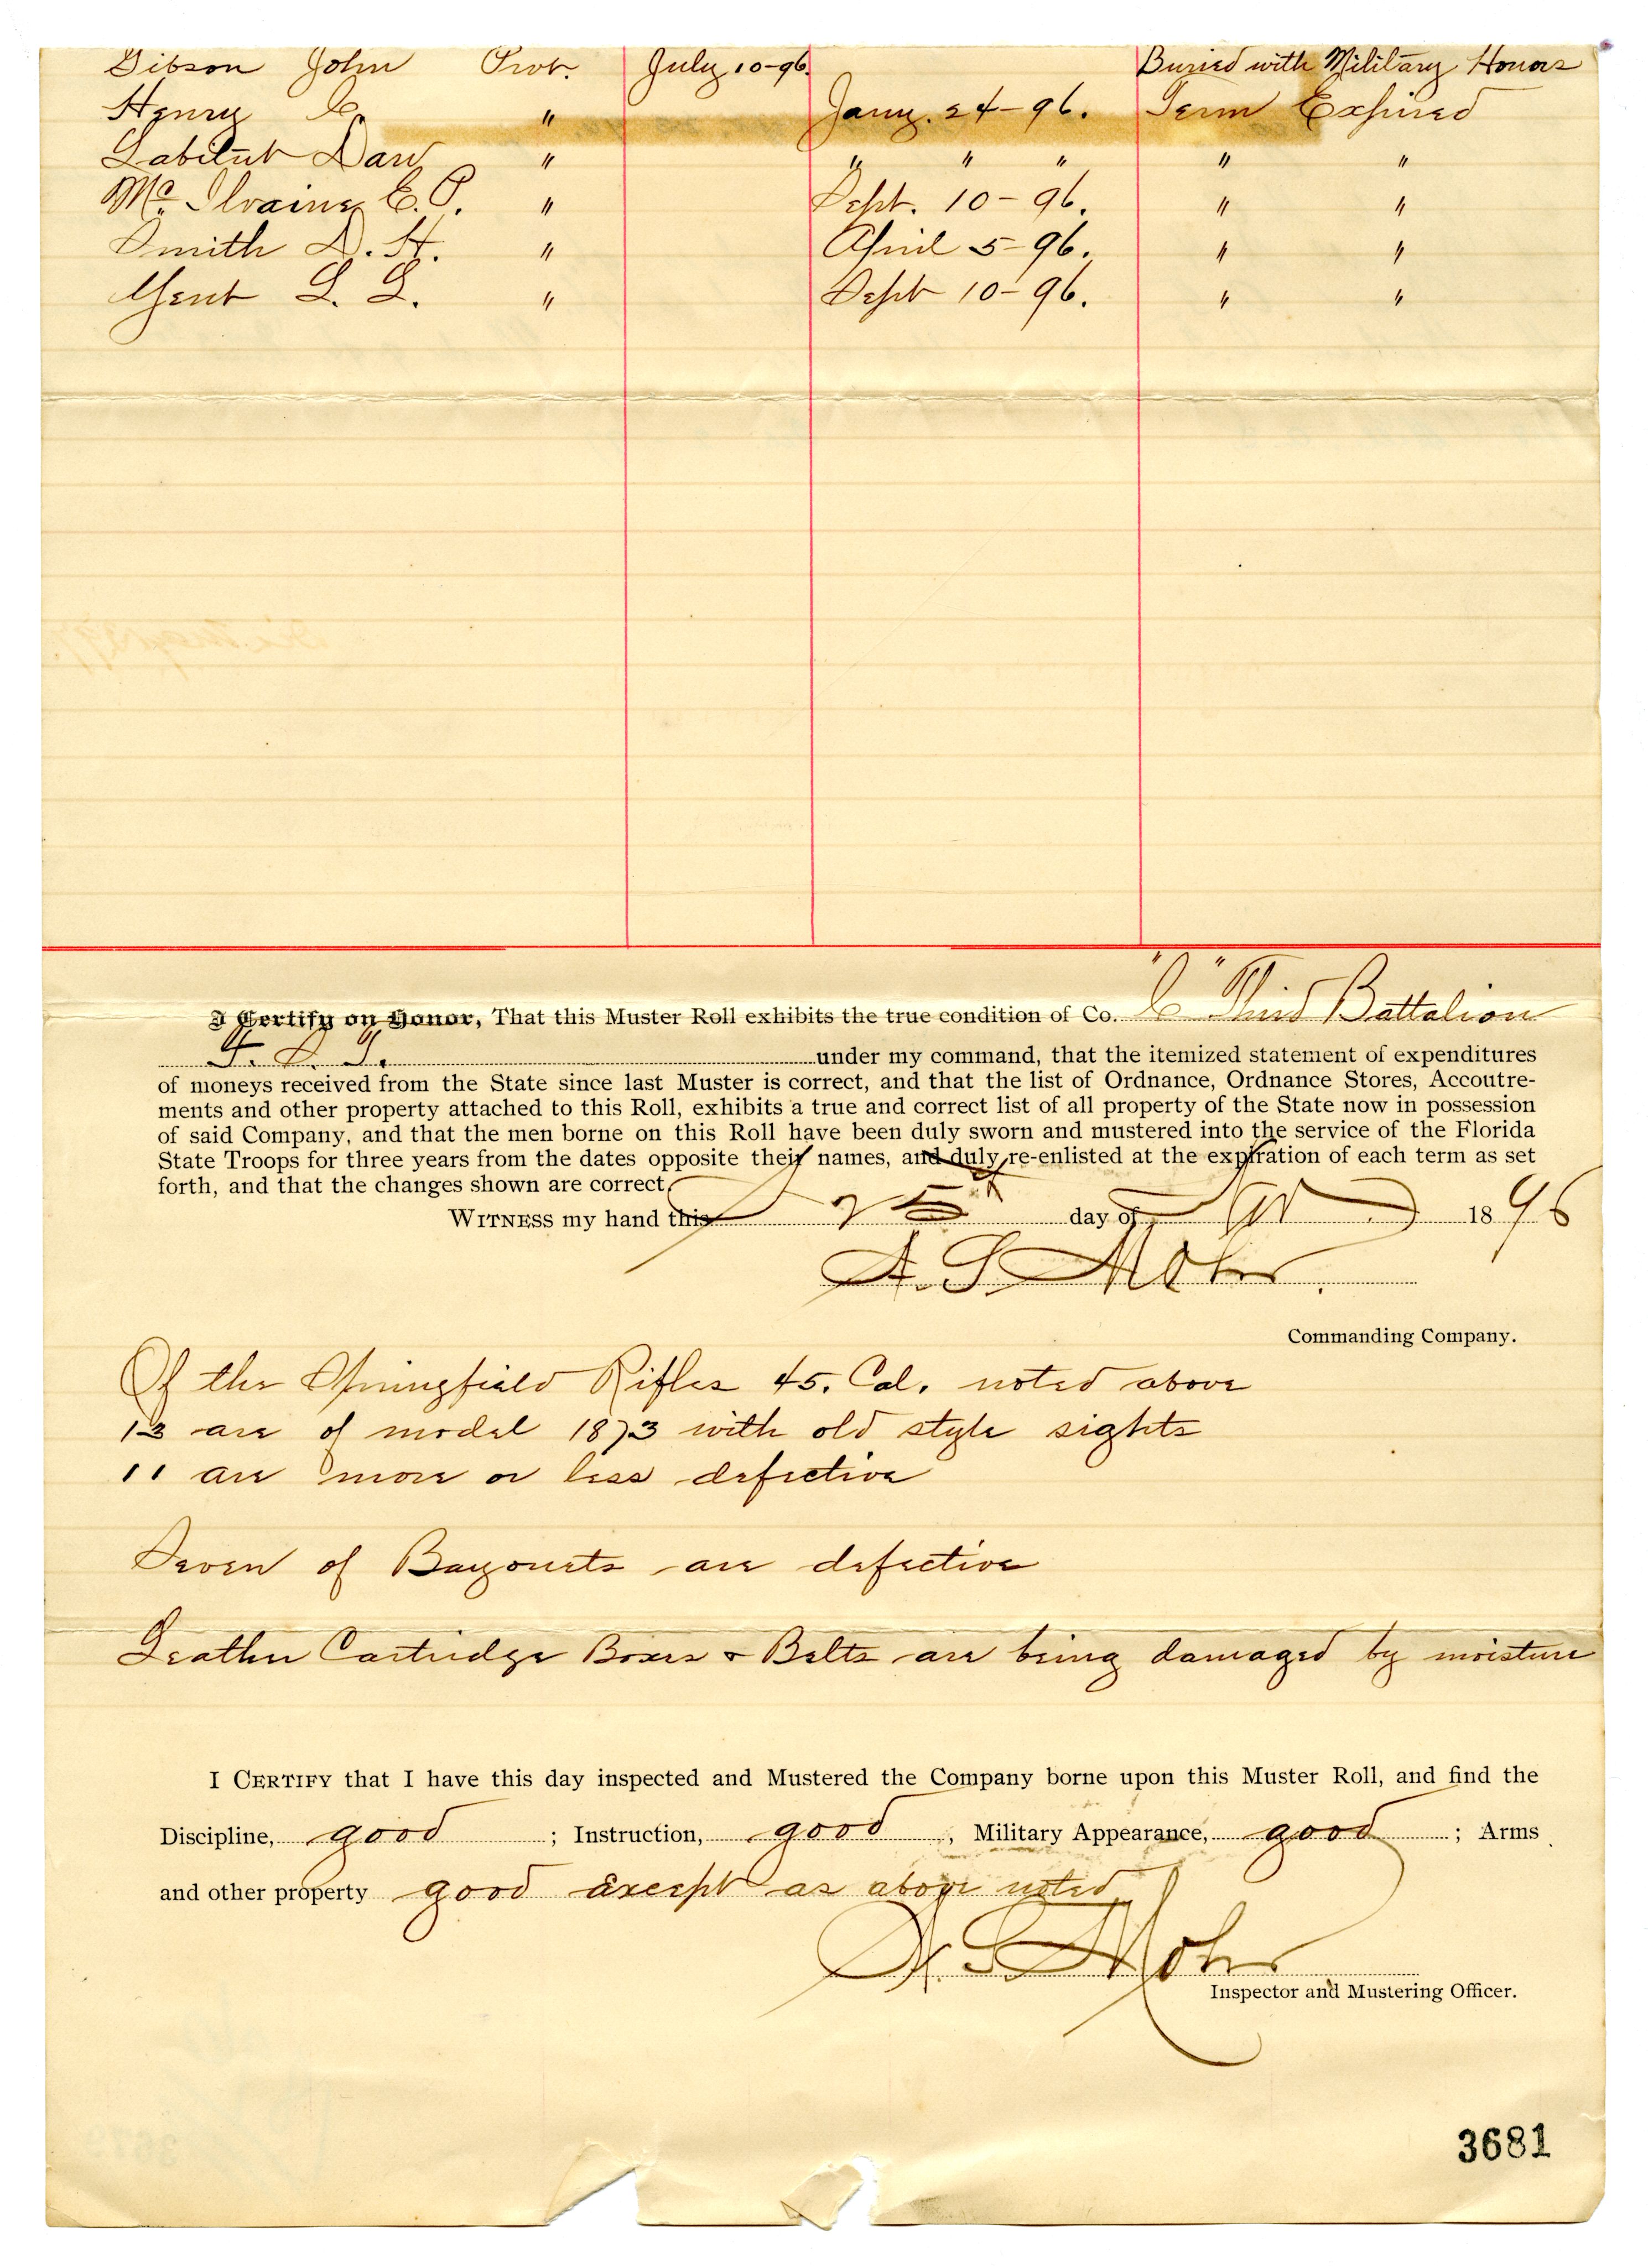 Gibson John Prvt. July 10-96. Buried with Military Honors
Henry C. " Jany. 24-96. Term Expired
Labilut Dan " " " " " "
Mc Ilvaine E. P. " Sept. 10-96. " "
Smith D. H. " April 5-96. " "
Gent L. L. " Sept 10-96. " "
I Certify on Honor, That this Muster Roll exhibits the true condition of Co. "C" Third Battalion
F. S. T. under my command, that the itemized statement of expenditures
of moneys received from the State since last Muster is correct, and that the list of Ordnance, Ordnance Stores, Accoutre-
ments and other property attached to this Roll, exhibits a true and correct list of all property of the State now in possession
of said Company, and that the men borne on this Roll have been duly sworn and mustered into the service of the Florida
State Troops for three years from the dates opposite their names, and duly re-enlisted at the expiration of each term as set
forth, and that the changes shown are correct.
WITNESS my hand this 25th day of 1896
A. S. Mohr.
Commanding Company.
Of the Springfield Rifles 45. Cal. noted above
13 are of model 1873 with old style sights
11 are more or less defective
Seven of Bayonets are defective
Leather Cartridge Boxes & Belts are being damaged by moisture
I CERTIFY that I have this day inspected and Mustered the Company borne upon this Muster Roll, and find the
Discipline, good ; Instruction, good , Military Appearance, good ; Arms
and other property good except as above noted
A. S. Mohr
Inspector and Mustering Officer.
3681